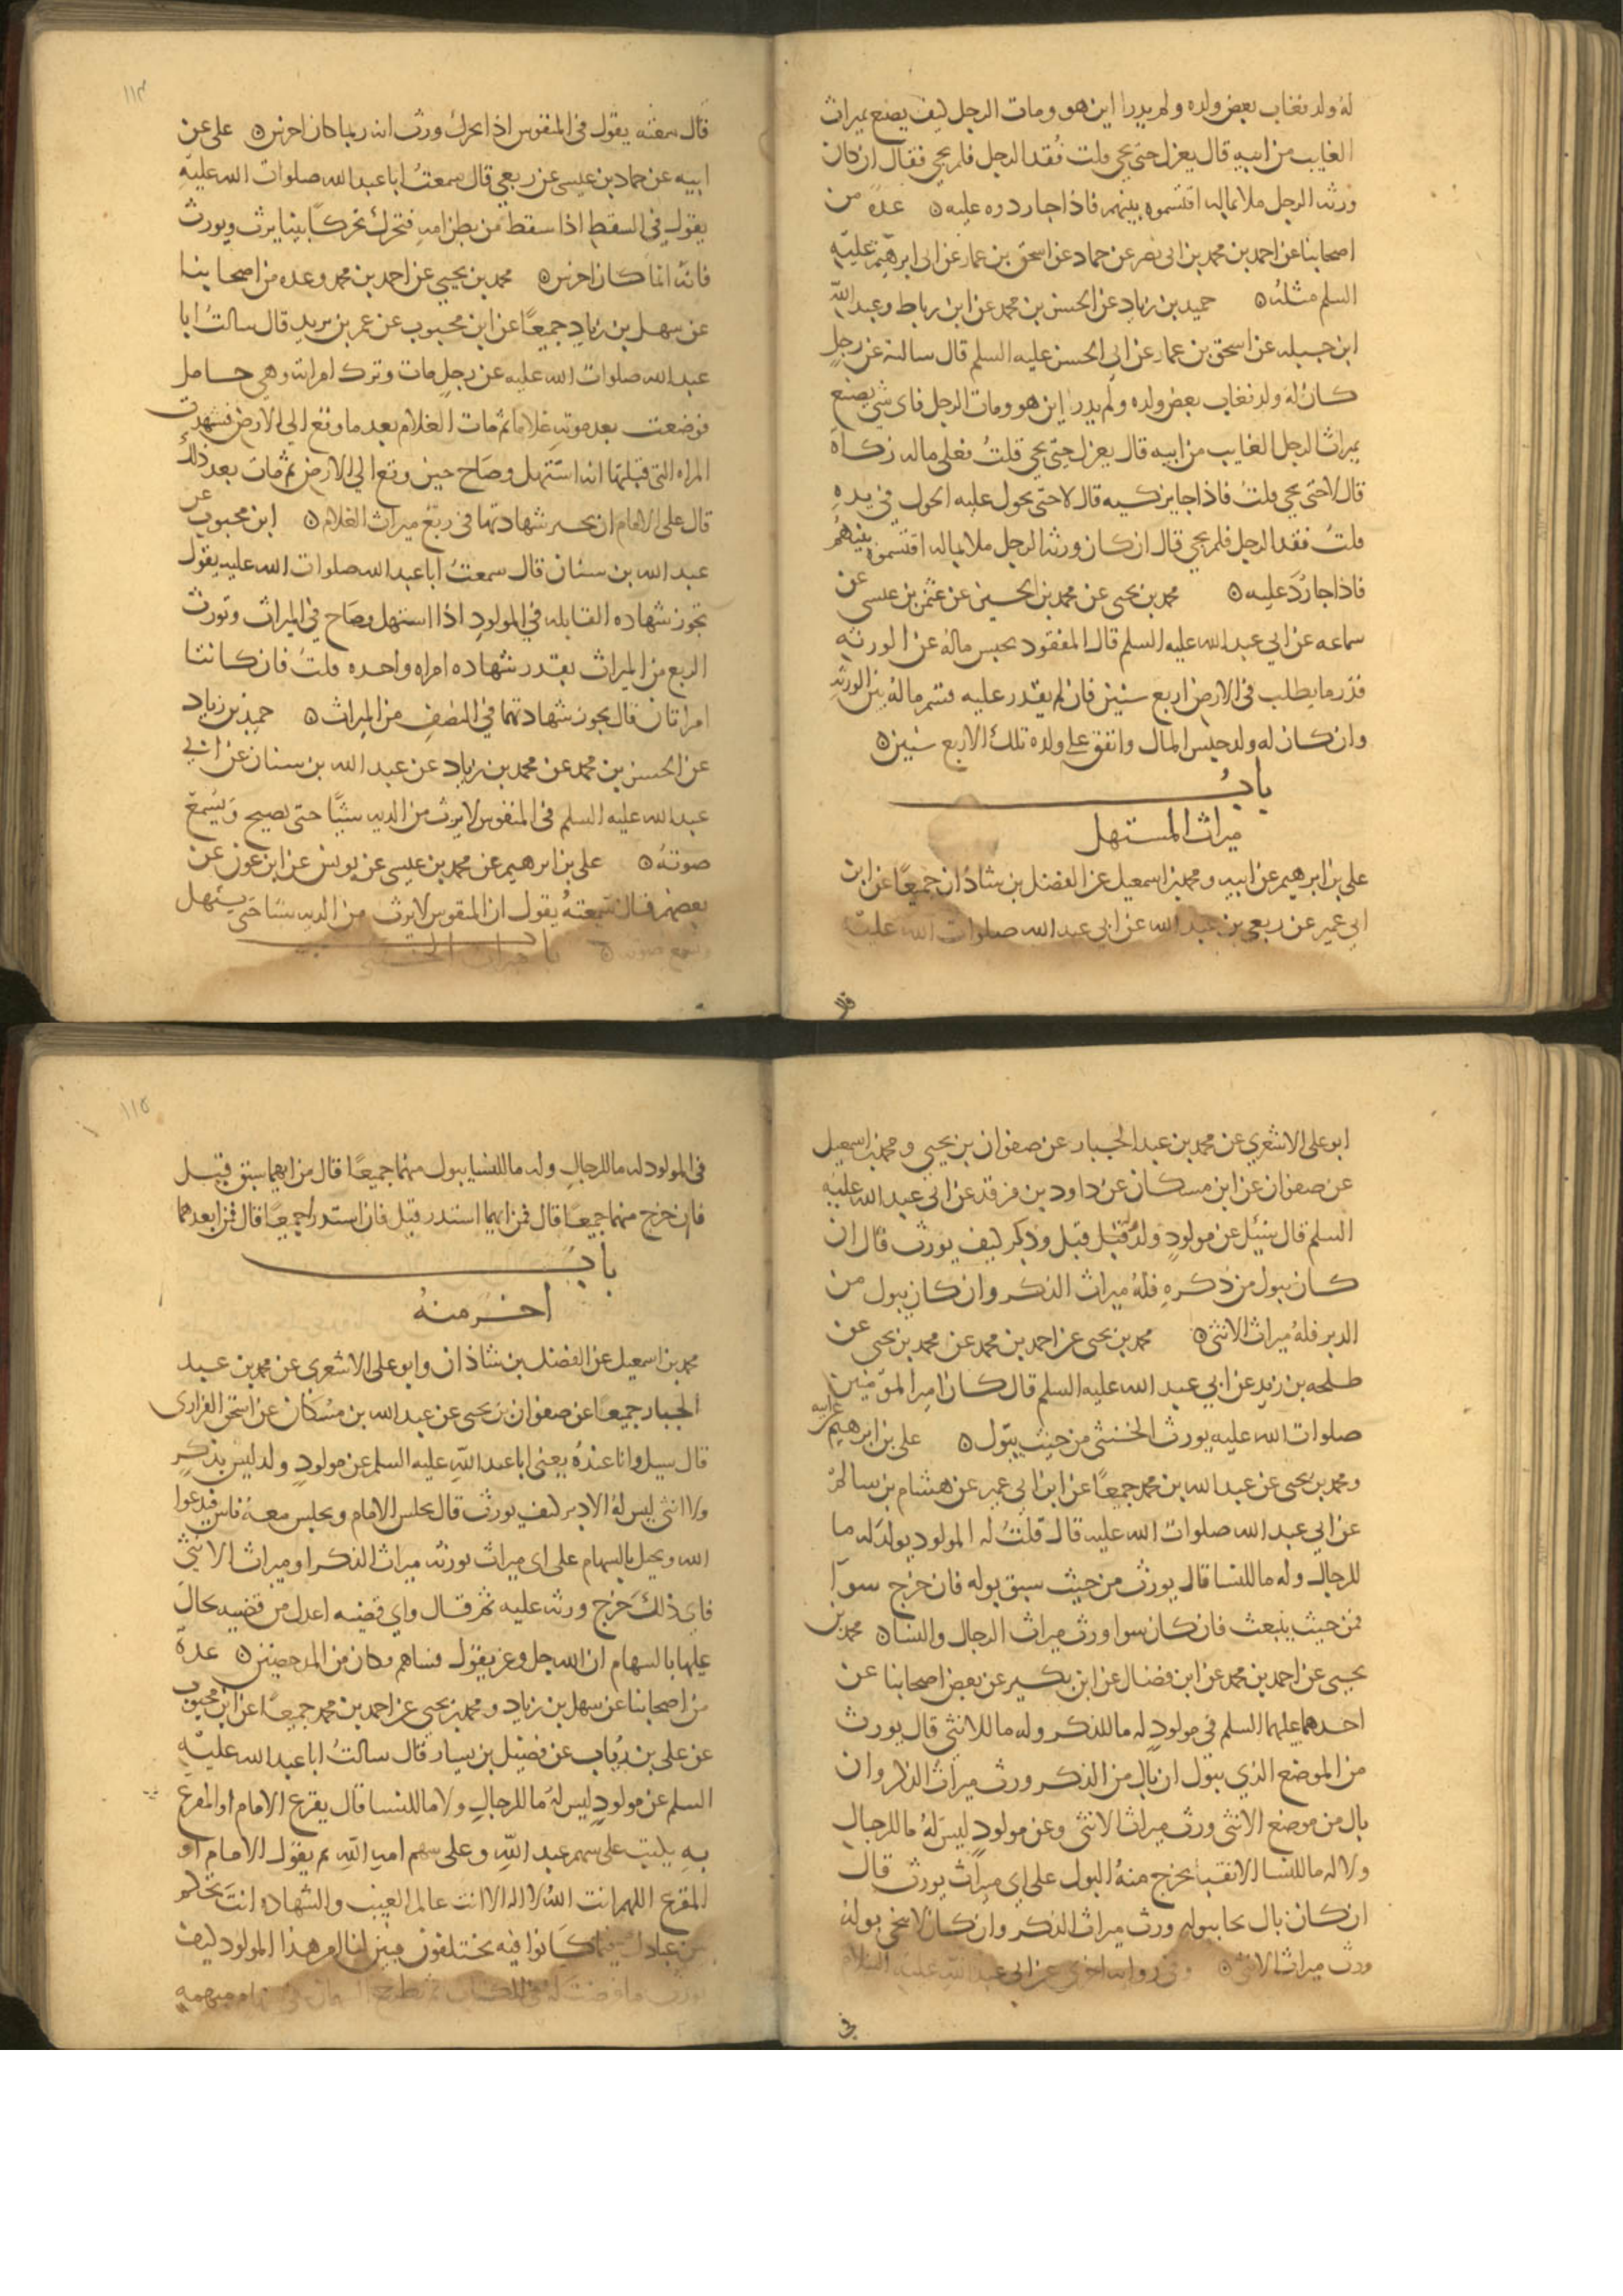 له ولد فغاب بعض ولده ولم يدر اين هو ومات الرجل كيف يصنع بميراث
الغايب من ابيه قال يعزل حتى يجي قلت فقد الرجل فلم يجي فقال ان كان
ورثه الرجل ملا بماله اقتسموه بينهم فاذا جا ردوه عليه ه عده من
اصحابنا عن احمد بن محمد بن ابي نصر عن حماد عن اسحق بن عمار عن ابي ابرهيم عليه
السلم مثله ه حميد بن زياد عن الحسن بن محمد عن ابن رباط وعبد الله
ابن جبله عن اسحق بن عمار عن ابي الحسن عليه السلم قال سالته عن رجل
كان له ولد فغاب بعض ولده ولم يدر اين هو ومات الرجل فاي شي يصنع
بميراث الرجل الغايب من ابيه قال يعزل حتى يجي قلت فعلى ماله زكاة
قال لا حتى يجي قلت فاذا جا يزكيه قال لا حتى يحول عليه الحول في يده
قلت فقد الرجل فلم يجي قال ان كان ورثه الرجل ملا بماله اقتسموه بينهم
فاذا جا رد عليه ه محمد بن يحيى عن محمد بن الحسين عن عثمن بن عيسى عن
سماعه عن ابي عبد الله عليه السلم قال المفقود يحبس ماله عن الورثه
قدر ما يطلب في الارض اربع سنين فان لم يقدر عليه قسم ماله بين الورثه
وان كان له ولد حبس المال وانفق على ولده تلك الاربع سنين ه
باب
ميراث المستهل
علي بن ابرهيم عن ابيه ومحمد بن اسمعيل عن الفضل بن شاذان جميعا عن ابن
ابي عمير عن ربعي بن عبد الله عن ابي عبد الله صلوات الله عليه
قال
١١٤
قال سمعته يقول في المنفوس اذا تحرك ورث انه ربما كان اخرس ه علي عن
ابيه عن حماد بن عيسى عن ربعي قال سمعت ابا عبد الله صلوات الله عليه
يقول في السقط اذا سقط من بطن امه فتحرك تحركا بينا يرث ويورث
فانه انما كان اخرس ه محمد بن يحيى عن احمد بن محمد وعده من اصحابنا
عن سهل بن زياد جميعا عن ابن محبوب عن عمر بن يزيد قال سالت ابا
عبد الله صلوات الله عليه عن رجل مات وترك امراته وهي حامل
فوضعت بعد موته غلاما ثم مات الغلام بعد ما وقع الى الارض فشهدت
المراه التي قبلتها انه استهل وصاح حين وقع الى الارض ثم مات بعد ذلك
قال على الامام ان يجيز شهادتها في ربع ميراث الغلام ه ابن محبوب عن
عبد الله بن سنان قال سمعت ابا عبد الله صلوات الله عليه يقول
تجوز شهاده القابله في المولود اذا استهل وصاح في الميراث وتورث
الربع من الميراث بقدر شهاده امراه واحده قلت فان كانتا
امراتان قال يجوز شهادتهما في النصف من الميراث ه حميد بن زياد
عن الحسن بن محمد عن محمد بن زياد عن عبد الله بن سنان عن ابي
عبد الله عليه السلم في المنفوس لا يورث من الديه شيا حتى يصيح ويسمع
صوته ه علي بن ابرهيم عن محمد بن عيسى عن يونس عن ابن عون عن
بعضهم قال سمعته يقول ان المنفوس لا يرث من الديه شيا حتى يستهل
ويسمع صوته ه باب ميراث الخنثى
ابو علي الاشعري عن محمد بن عبد الجبار عن صفوان بن يحيى ومحمد بن اسمعيل
عن صفوان عن ابن مسكان عن داود بن فرقد عن ابي عبد الله عليه
السلم قال سئل عن مولود ولد قبل وذكر كيف يورث قال ان
كان يبول من ذكره فله ميراث الذكر وان كان يبول من
الدبر فله ميراث الانثى ه محمد بن يحيى عن احمد بن محمد عن محمد بن يحيى عن
طلحه بن زيد عن ابي عبد الله عليه السلم قال كان امير المومنين
صلوات الله عليه يورث الخنثى من حيث يبول ه علي بن ابرهيم عن ابيه
ومحمد بن يحيى عن عبد الله بن محمد جميعا عن ابن ابي عمير عن هشام بن سالم
عن ابي عبد الله صلوات الله عليه قال قلت له المولود يولد له ما
للرجال وله ما للنسا قال يورث من حيث سبق بوله فان خرج سوآ
فمن حيث ينبعث فان كان سوا ورث ميراث الرجال والنسا ه محمد بن
يحيى عن احمد بن محمد عن ابن فضال عن ابن بكير عن بعض اصحابنا عن
احدهما عليهما السلم في مولود له ما للذكر وله ما للانثى قال يورث
من الموضع الذي يبول ان بال من الذكر ورث ميراث الذكر وان
بال من موضع الانثى ورث ميراث الانثى وعن مولود ليس له ما للرجال
ولا له ما للنسا الا ثقبا يخرج منه البول على اي ميراث يورث قال
ان كان بال نحا ببوله ورث ميراث الذكر وان كان لا ينحي بوله
ورث ميراث الانثى ه وفي روايه اخرى عن ابي عبد الله عليه السلام
في
١١٥
في المولود له ما للرجال وله ما للنسا يبول منهما جميعا قال من ايهما سبق قيل
فان خرج منهما جميعا قال فمن ايهما استدر قيل فان استدرا جميعا قال فمن ابعدهما
باب
اخر منه
محمد بن اسمعيل عن الفضل بن شاذان وابو علي الاشعري عن محمد بن عبد
الجبار جميعا عن صفوان بن يحيى عن عبد الله بن مسكان عن اسحق الفزاري
قال سيل وانا عنده يعني ابا عبد الله عليه السلم عن مولود ولد ليس بذكر
ولا انثى ليس له الا دبر كيف يورث قال يجلس الامام ويجلس معه ناس فيدعوا
الله ويجيل بالسهام على اي ميراث يورثه ميراث الذكر او ميراث الانثى
فاي ذلك خرج ورثه عليه ثم قال واي قضيه اعدل من قضيه يجال
عليها بالسهام ان الله جل وعز يقول فساهم فكان من المدحضين ه عدة
من اصحابنا عن سهل بن زياد ومحمد بن يحيى عن احمد بن محمد جميعا عن ابن محبوب
عن علي بن رئاب عن فضيل بن يسار قال سالت ابا عبد الله عليه
السلم عن مولود ليس له ما للرجال ولا ما للنسا قال يقرع الامام او المقرع
به يكتب على سهم عبد الله وعلى سهم امه الله ثم يقول الامام او
المقرع اللهم انت الله لا اله الا انت عالم الغيب والشهاده انت تحكم
بين عبادك فيما كانوا فيه يختلفون فبين لنا امر هذا المولود كيف
يورث ما فرضت له في الكتاب ثم تطرح السهمان في سهام مبهمه